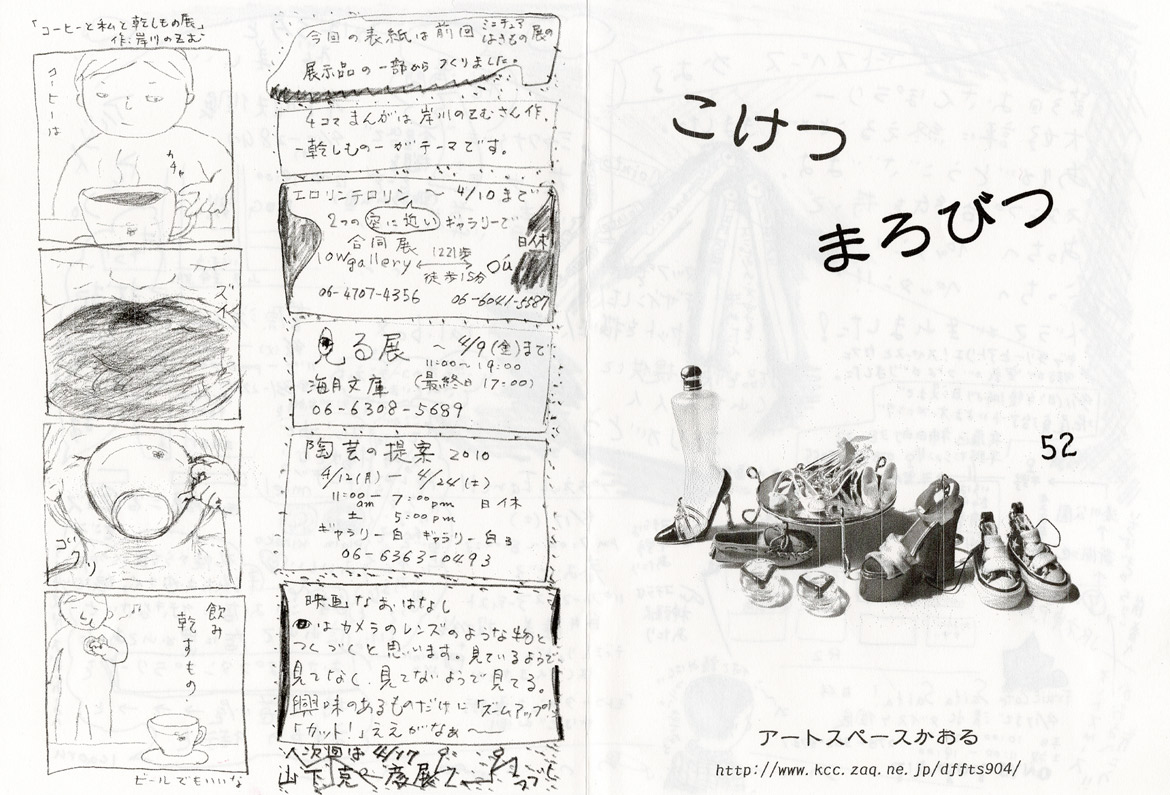 「コーヒーと私と乾しもの展」
作.岸川のぞむ
コーヒーは
カチャ
ズイ
ゴクリ
飲み
乾すもの
ビールでもいいな
今回の表紙は前回ミニチュアはきもの展の
展示品の一部からつくりました。
4コマまんがは岸川のぞむさん作.
ー乾しものーがテーマです。
エロリンテロリン ～4/10まで
2つの空に近いギャラリーで
合同展 日休
lowgallery 1221歩 Oú
徒歩15分
06-4707-4356 06-6041-5587
見る展 ～4/9(金)まで
11:00～19:00
海月文庫 (最終日17:00)
06-6308-5689
陶芸の提案 2010
4/12(月)ー4/24(土)
11:00am ー 7:00pm 日休
土 5:00pm
ギャラリー白 ギャラリー白3
06-6363-0493
映画なおはなし
はカメラのレンズのような物と
つくづくと思います。見ているようで
見てなく、見てないようで見てる。
興味のあるものだけに「ズムアップ!」
「カット!」ええがなぁ～
次週は4/17
山下克彦展
こけつ
まろびつ
52
アートスペースかおる
http://www.kcc.zaq.ne.jp/dffts904/